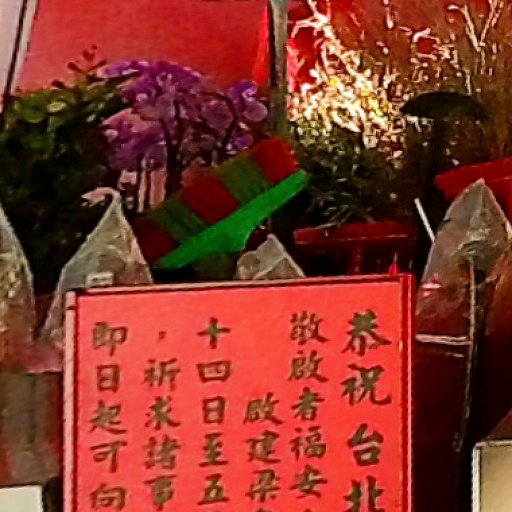 恭祝台北
敬啟者福安
啟建梁
十四日至五
，祈求諸事
即日起可向